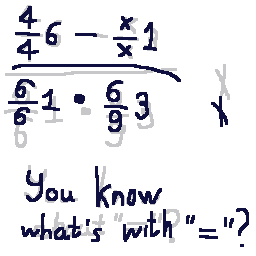 4/4 6 − x/x 1
6/6 1 • 6/9 3 x
You know
what's with "="?